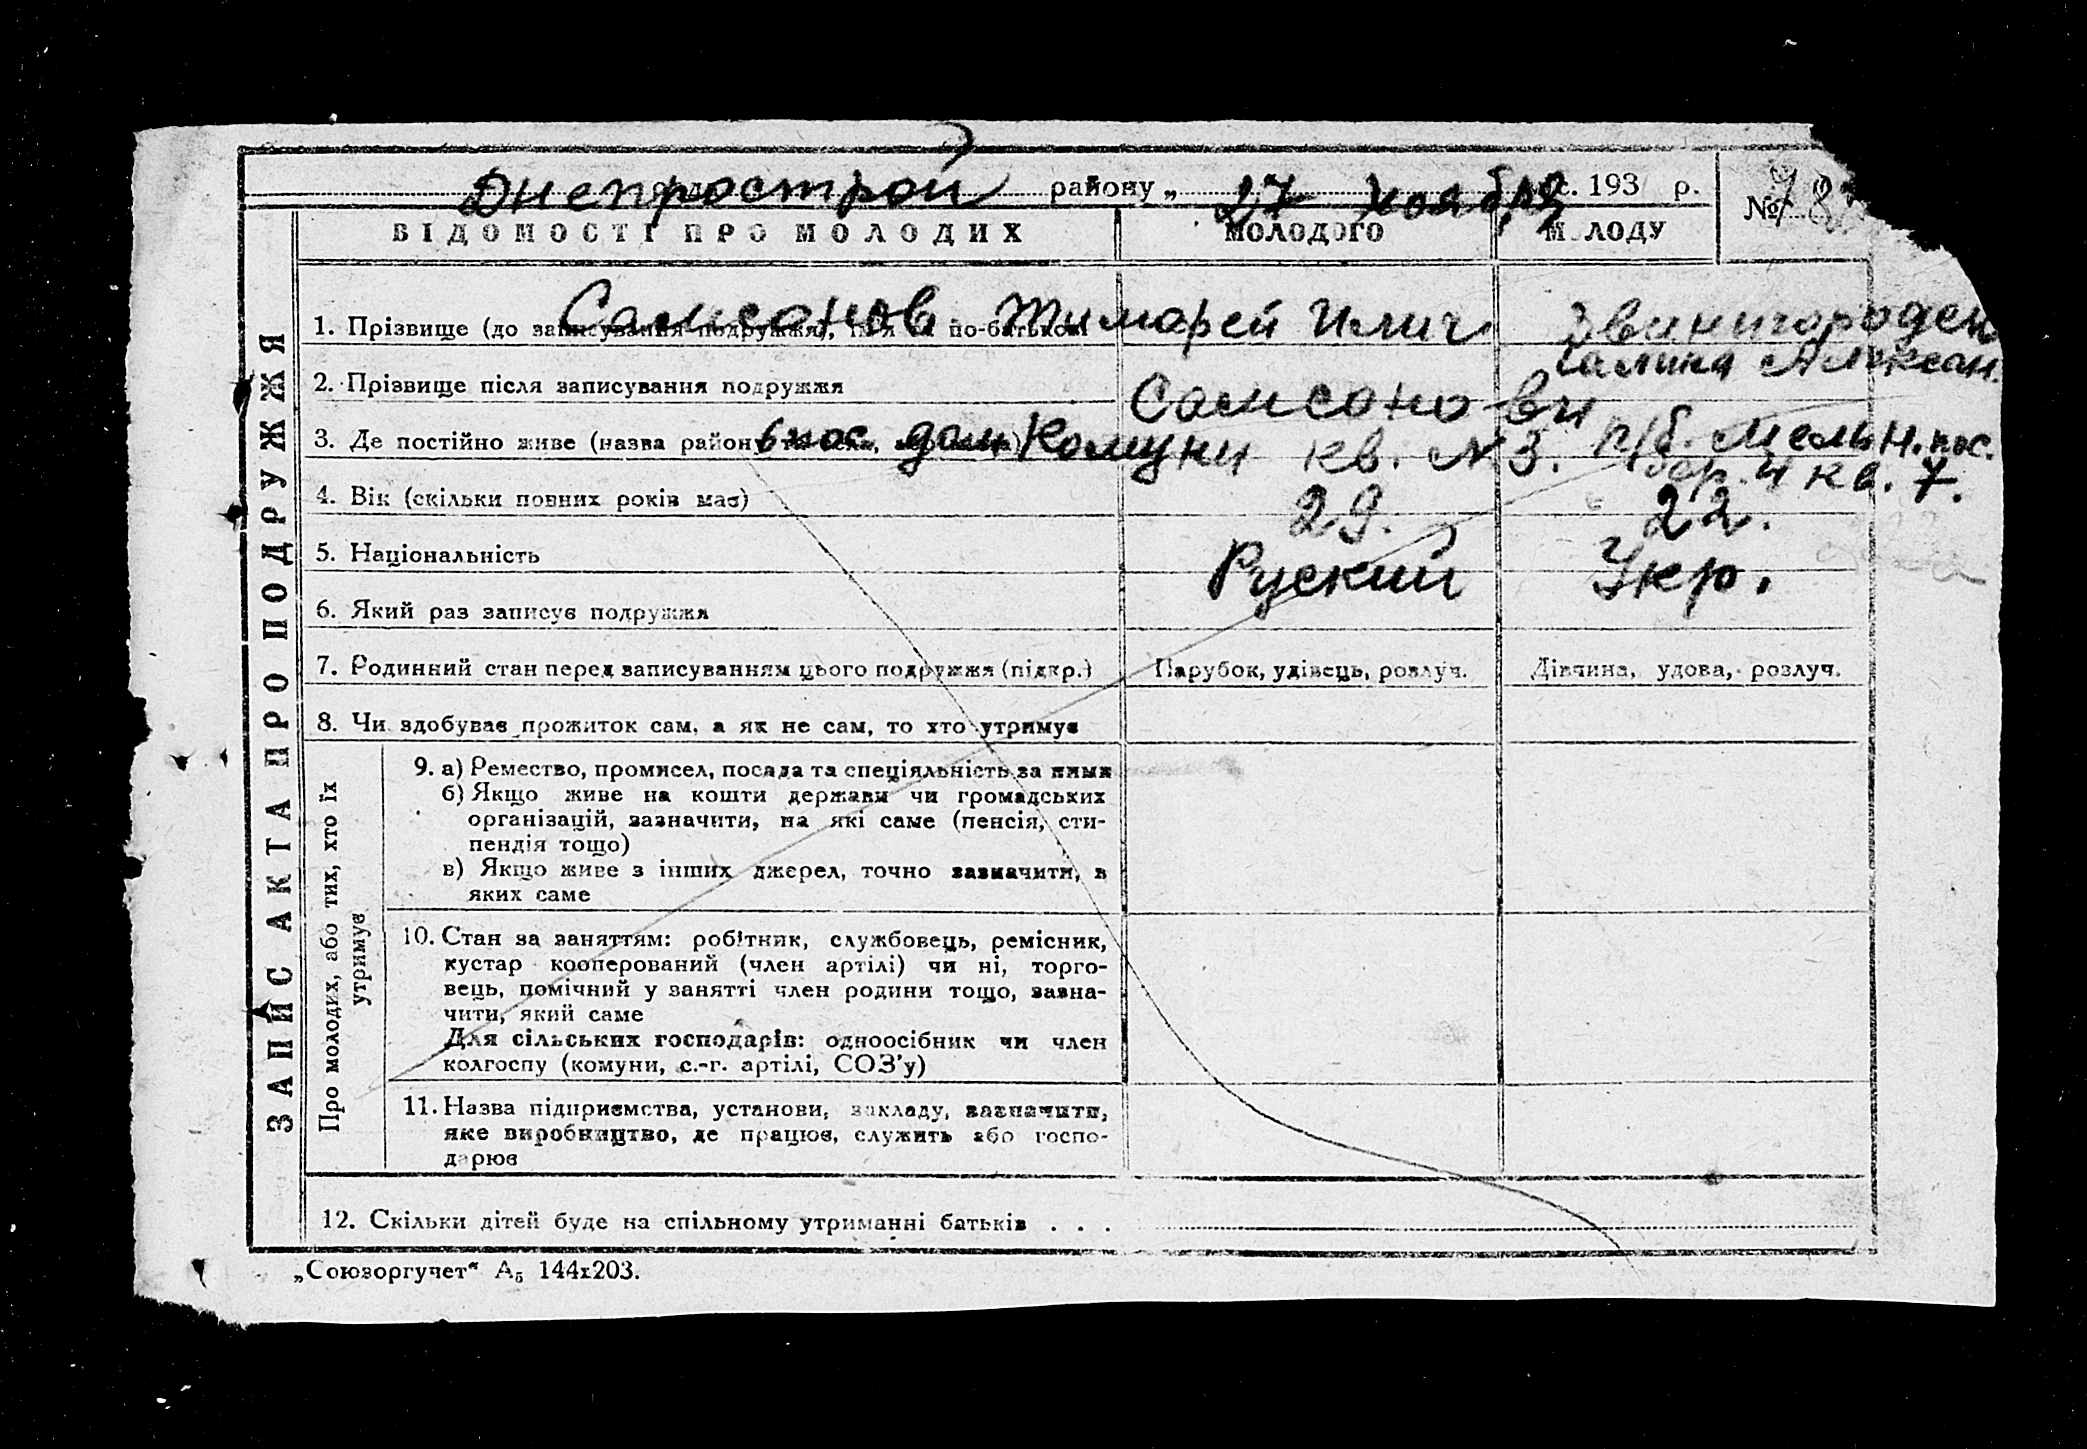 Днепрострой району „ 27 ноября с. 193 р. № 78
ВІДОМОСТІ ПРО МОЛОДИХ МОЛОДОГО МОЛОДУ
ЗАПИС АКТА ПРО ПОДРУЖЖЯ
Самсонов Тимофей Илич Звинигороден
1. Прізвище (до записування подружжя), ім'я та по-батькові
Галина Алексан.
2. Прізвище після записування подружжя Самсонови
3. Де постійно живе (назва району 6 пос. дом Комуни кв. № 3. п/б. Мельн. пос.
бар. 4 кв. 7.
4. Вік (скільки повних років має) 29. 22.
5. Національність Руский Укр.
6. Який раз записує подружжя
7. Родинний стан перед записуванням цього подружжя (підкр.) Парубок, удівець, розлуч. Дівчина, удова, розлуч.
8. Чи здобував прожиток сам, а як не сам, то хто утримує
Про молодих, або тих, хто їх
утримує
9. а) Ремество, промисел, посада та спеціяльність за ними
б) Якщо живе на кошти держави чи громадських
організацій, зазначити, на які саме (пенсія, сти-
пендія тощо)
в) Якщо живе з інших джерел, точно зазначити, з
яких саме
10. Стан за заняттям: робітник, службовець, ремісник,
кустар кооперований (член артілі) чи ні, торго-
вець, помічний у занятті член родини тощо, зазна-
чити, який саме
Для сільських господарів: одноосібник чи член
колгоспу (комуни, с.-г. артілі, СОЗ'у)
11. Назва підприємства, установи, закладу, зазначити,
яке виробництво, де працює, служить або госпо-
дарює
12. Скільки дітей буде на спільному утриманні батьків . . .
„Союзоргучет“ А₅ 144х203.